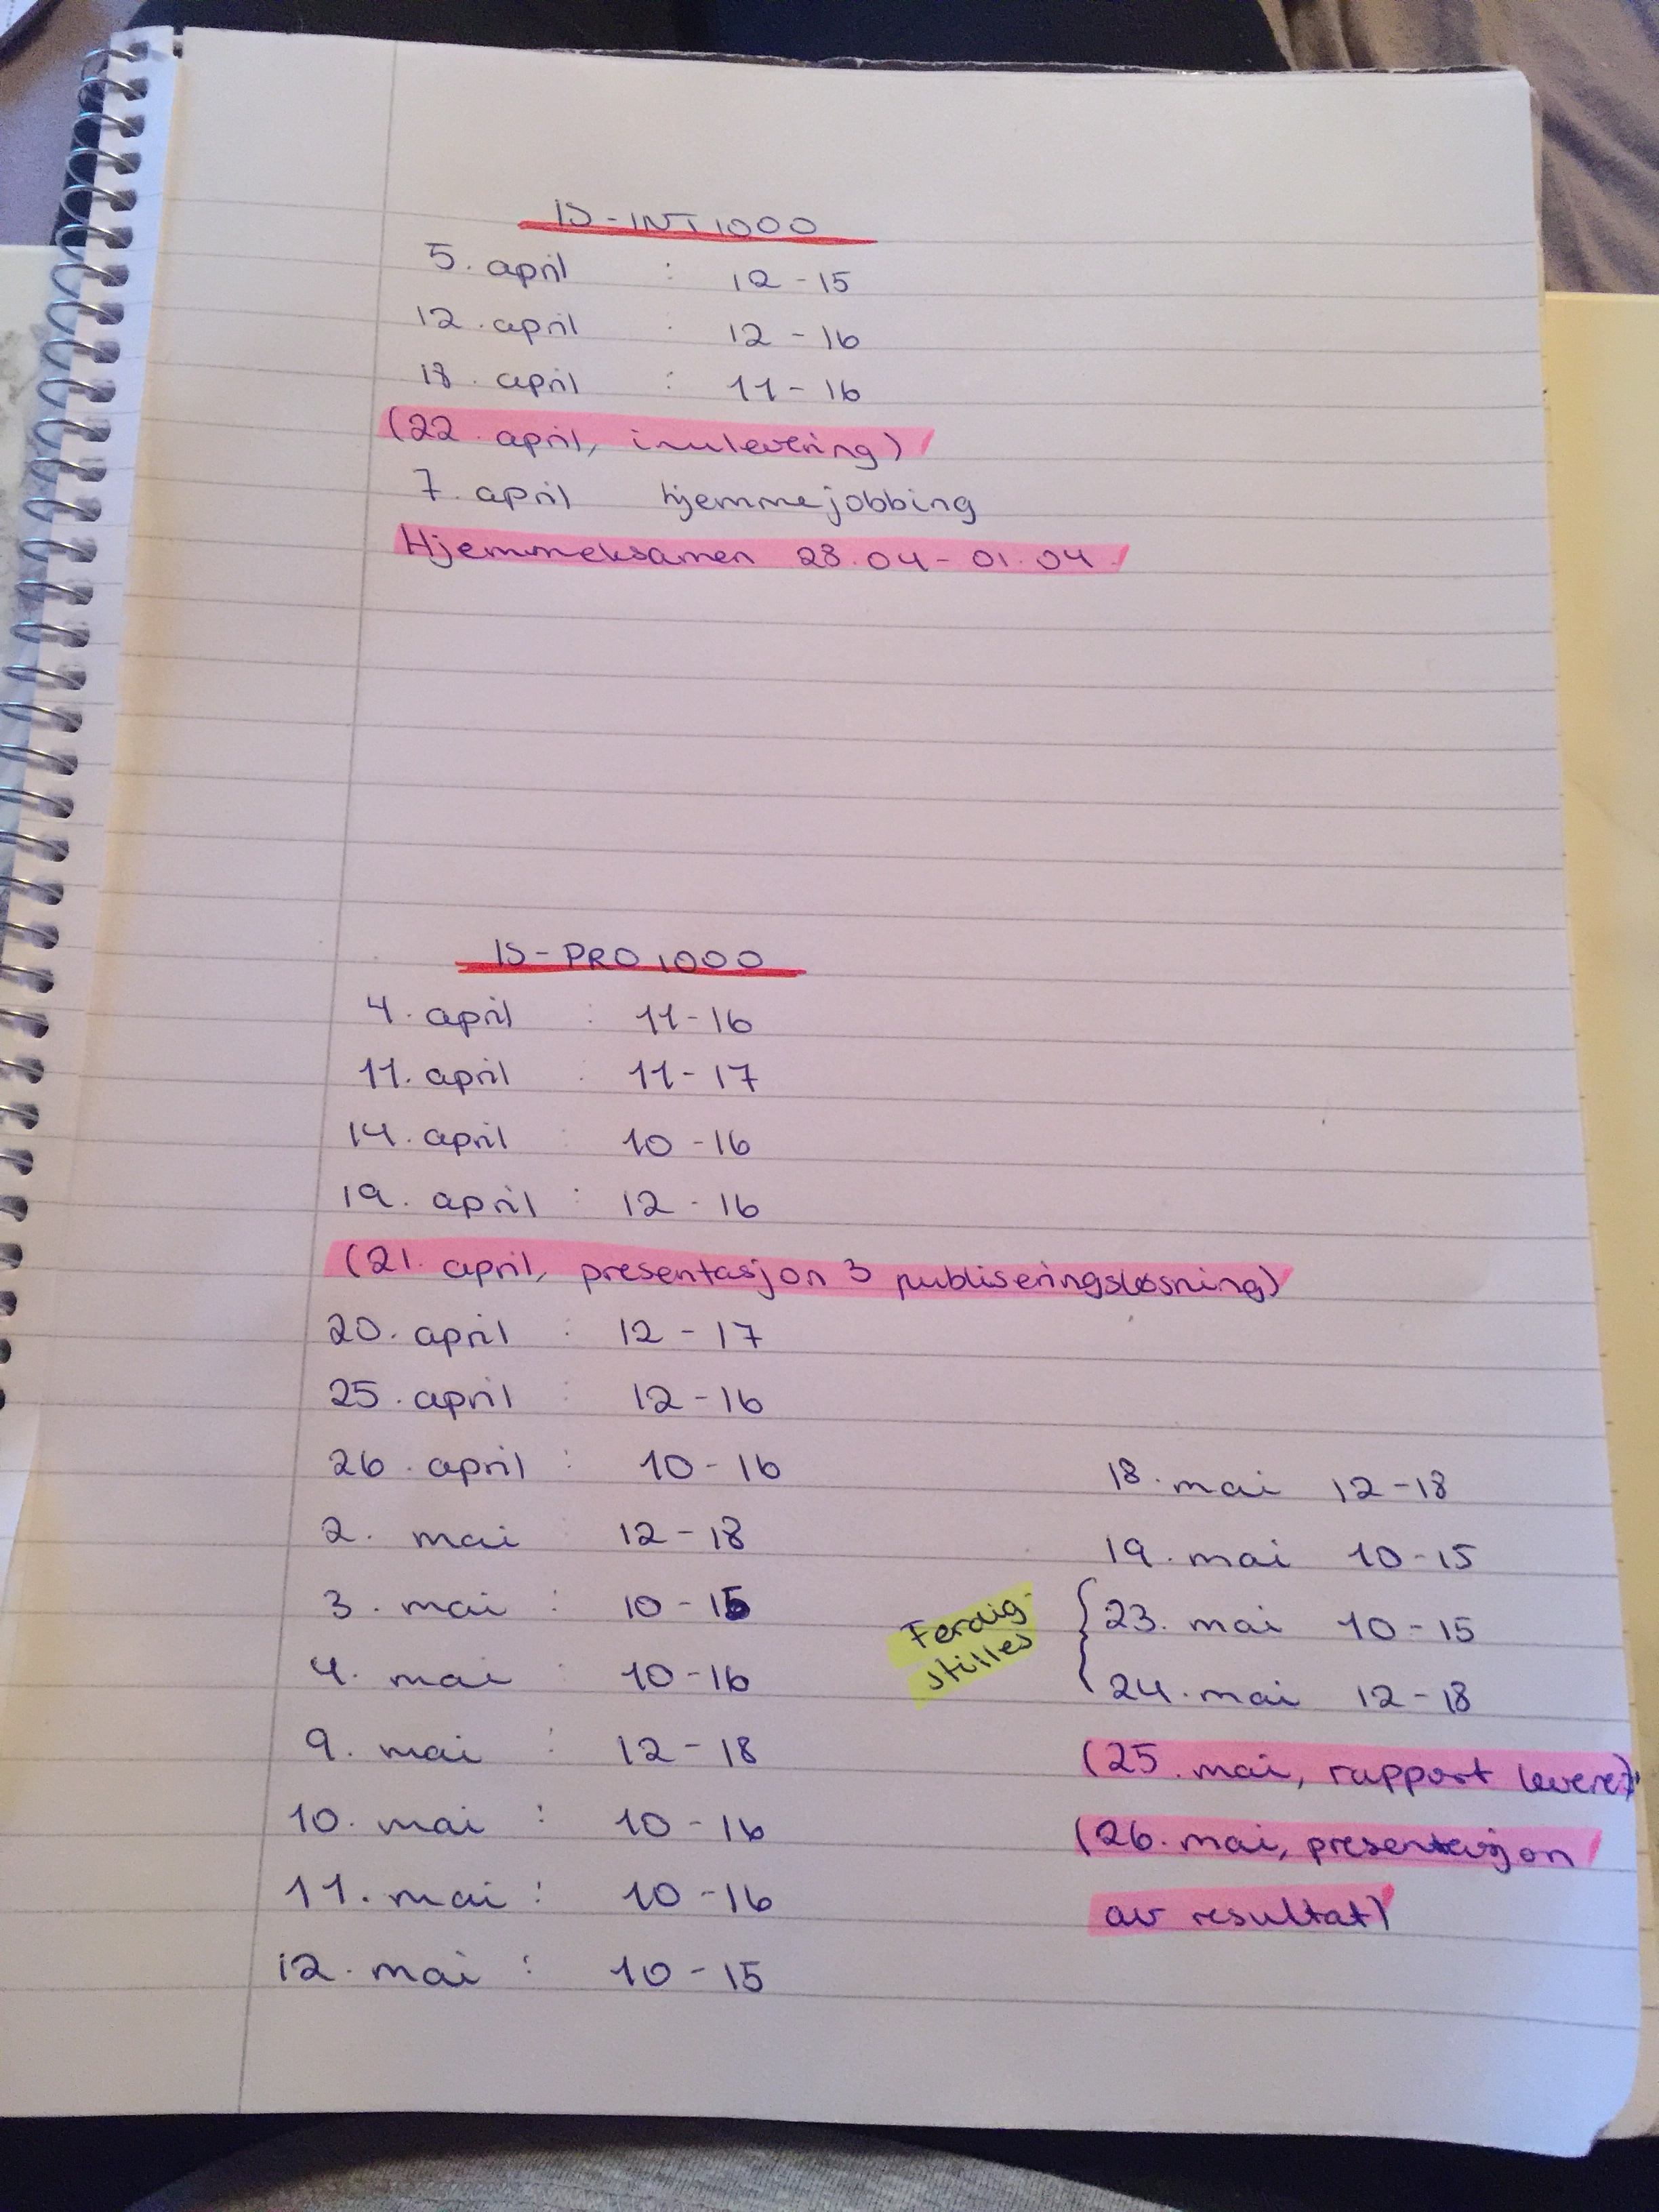 IS-INT1000
5. april : 12-15
12. april : 12-16
18. april : 11-16
(22. april, innlevering)
7. april hjemmejobbing
Hjemmeksamen 28.04-01.04.
IS-PRO1000
4. april : 11-16
11. april : 11-17
14. april : 10-16
19. april : 12-16
(21. april, presentasjon 3 publiseringsløsning)
20. april : 12-17
25. april : 12-16
26. april : 10-16
2. mai : 12-18
3. mai : 10-
4. mai : 10-16
9. mai : 12-18
10. mai : 10-16
11. mai : 10-16
12. mai : 10-15
18. mai 12-18
19. mai 10-15
Ferdig-
stilles
23. mai 10-15
24. mai 12-18
(25. mai, rapport levere)
(26. mai, presentasjon
av resultat)